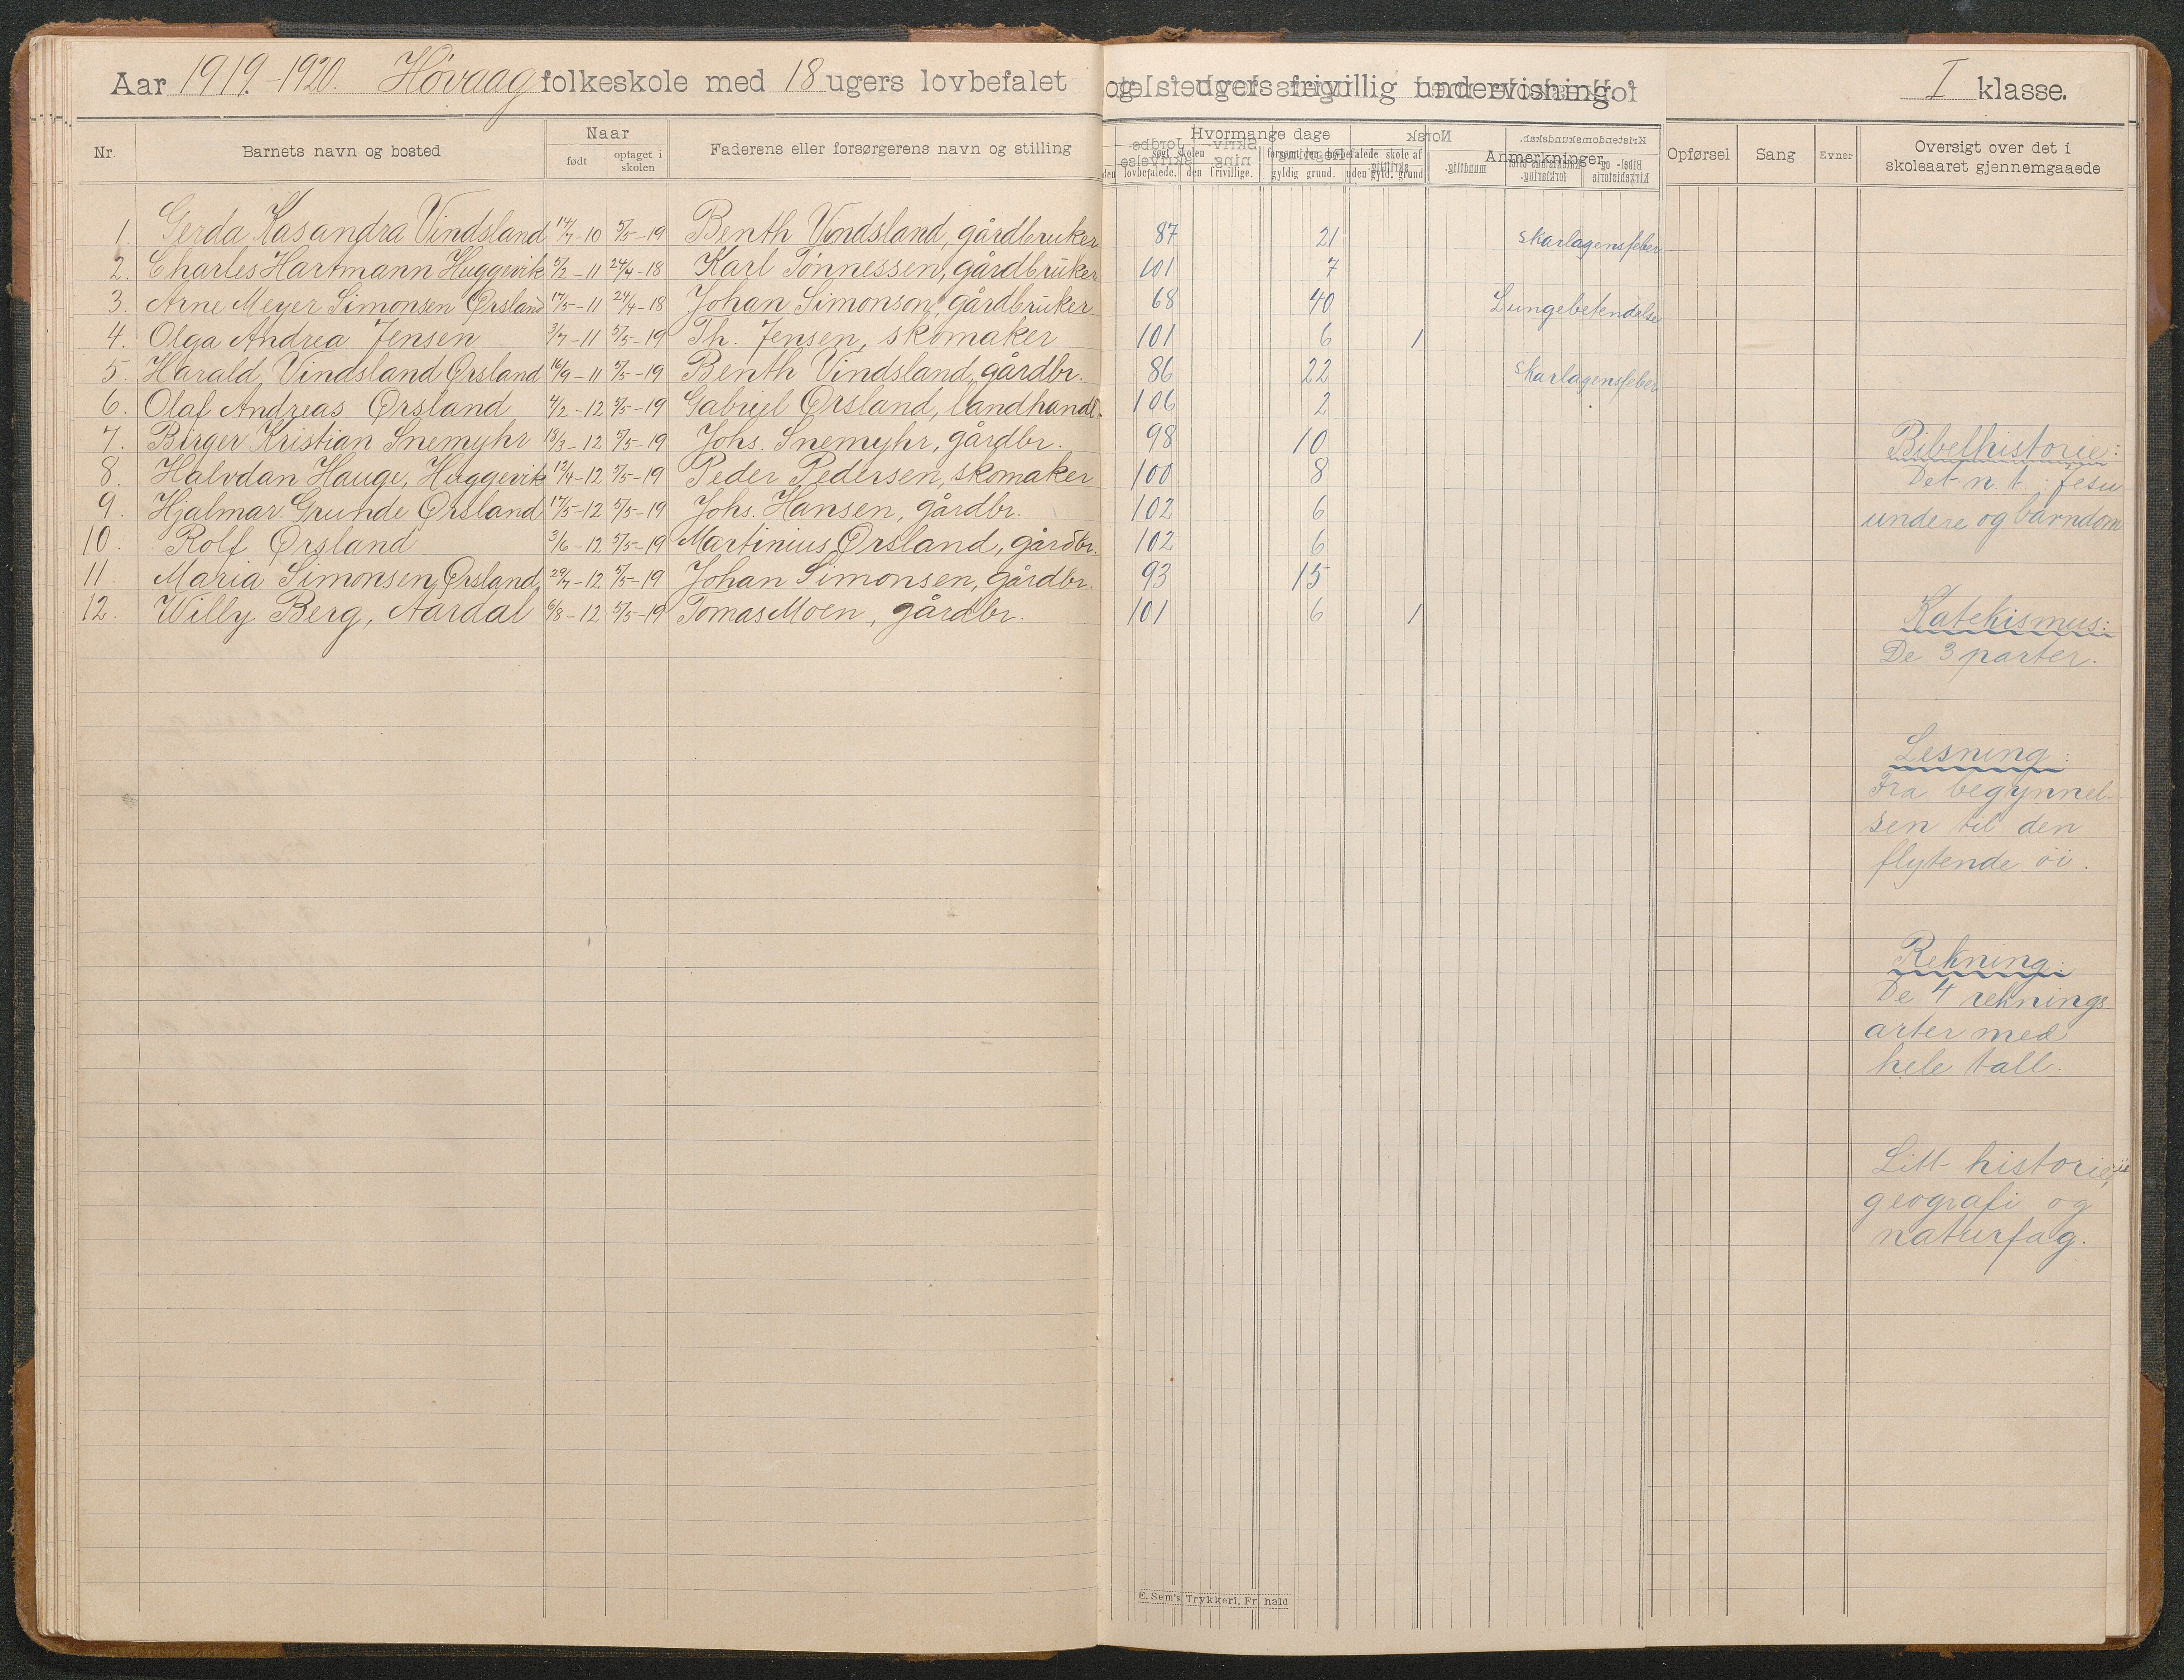 Aar 1919.-1920. Høvaag folkeskole med 18 ugers lovbefalet og ugers frivillig undervisning. I klasse.
Nr. Barnets navn og bosted Naar født optaget i skolen Faderens eller forsørgerens navn og stilling Hvormange dage Anmerkninger Opførsel Sang Evner Oversigt over det i skoleaaret gjennemgaaede
søgt skolen den lovbefalede. den frivillige. forsømt den lovbefalede skole af gyldig grund. uden gyld. grund
1. Gerda Kasandra Vindsland 14/7-10 5/5-19 Benth Vindsland, gårdbruker 87 21 skarlagensfeber
2. Charles Hartmann Huggevik 5/2-11 24/4-18 Karl Tønnessen, gårdbruker 101 7
3. Arne Meyer Simonsen Ørsland 17/5-11 24/4-18 Johan Simonson, gårdbruker 68 40 Lungebetendelse
4. Olga Andrea Jensen 3/7-11 5/5-19 Th. Jensen, skomaker 101 6 1
5. Harald Vindsland Ørsland 16/9-11 5/5-19 Benth Vindsland, gårdbr. 86 22 skarlagensfeber
6. Olaf Andreas Ørsland 4/2-12 5/5-19 Gabriel Ørsland, landhandl. 106 2
7. Birger Kristian Snemyhr 18/3-12 5/5-19 Johs. Snemyhr, gårdbr. 98 10
8. Halvdan Hauge, Huggevik 12/4-12 5/5-19 Peder Pedersen, skomaker 100 8
9. Hjalmar Grunde Ørsland 17/5-12 5/5-19 Johs. Hansen, gårdbr. 102 6
10. Rolf Ørsland 3/6-12 5/5-19 Martinius Ørsland, gårdbr. 102 6
11. Maria Simonsen, Ørsland, 29/7-12 5/5-19 Johan Simonsen, gårdbr. 93 15
12. Willy Berg, Aardal 6/8-12 5/5-19 Tomas Moen, gårdbr. 101 6 1
Bibelhistorie:
Det n. t.: Jesu
undere og barndom
Katekismus:
De 3 parter.
Lesning:
Fra begynnel-
sen til den
flytende øi.
Rekning:
De 4 reknings
arter med
hele tall.
Litt historie,
geografi og
naturfag.
E. Sem's Trykkeri, Fr. hald